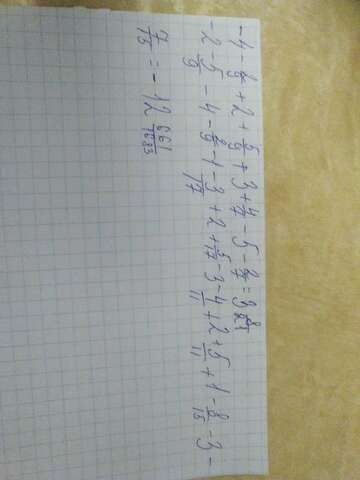 -4 - 8/9 + 2 + 5/9 + 3 + 4/7 - 5 - 2/7 = 3 8/21
-2 - 5/9 - 4 - 8/9 - 1 - 3/17 + 2 + 5/17 - 3 - 4/11 + 2 + 5/11 + 1 - 8/15 - 3 -
7/15 = -12 661/1683